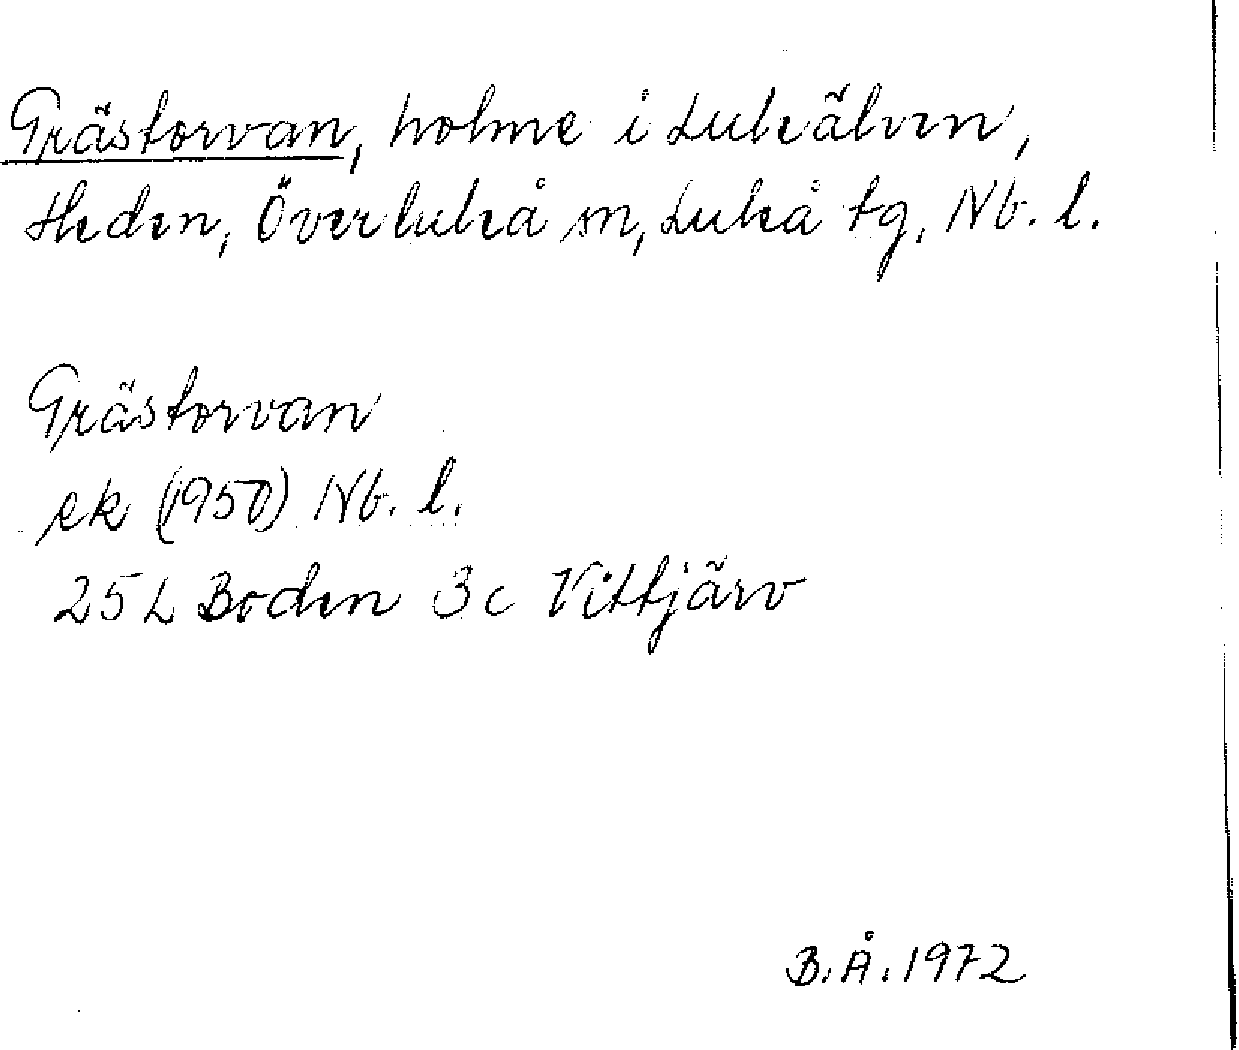 Grästorvan, holme i Luleälven,
Heden, Överluleå sn, Luleå tg, Nb. l.
Grästorvan
ek (1950) Nb. l.
25 L Boden 3c Vittjärv
B.Å. 1972